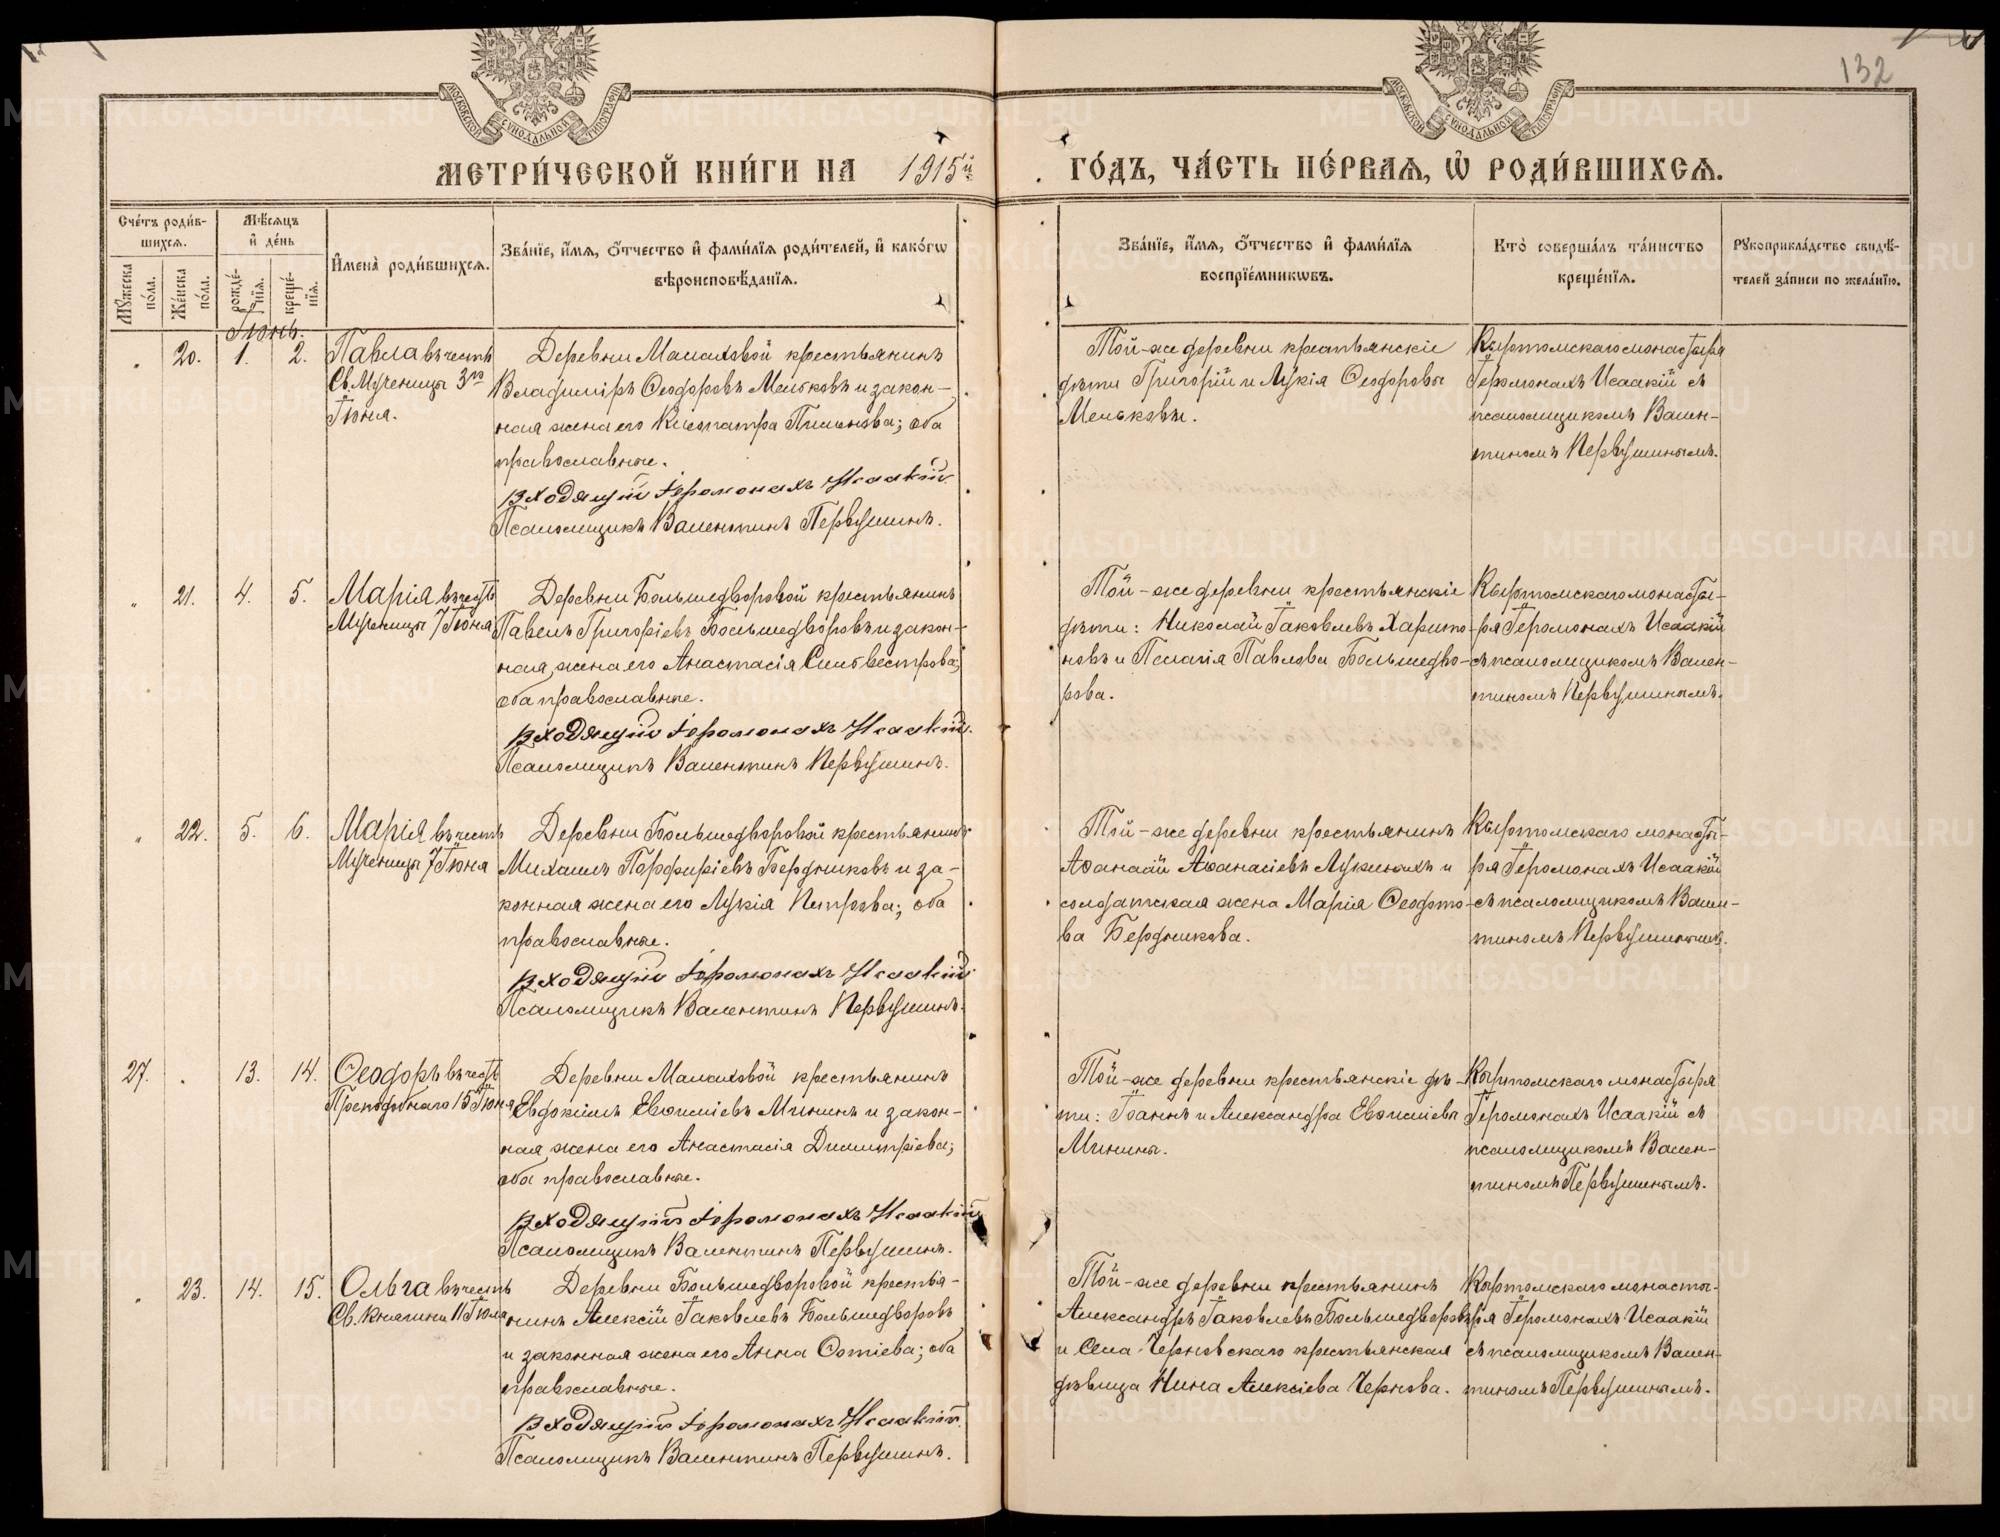 132
МОСКОВСКОЙ СУНОДАЛЬНОЙ ТИПОГРАФІИ
МОСКОВСКОЙ СУНОДАЛЬНОЙ ТИПОГРАФІИ
МЕТРИ́ЧЕСКОЙ КНИ́ГИ НА 1915й
ГО́ДЪ, ЧА́СТЬ ПЕ́РВАѦ, Ѡ҆ РОДИ́ВШИХСѦ.
Сче́тъ роди́в-
шихсѧ.
Мꙋ́жеска по́ла.
Же́нска по́ла.
Мѣ́сѧцъ
и҆ де́нь
рожде́-
нїѧ.
креще́-
нїѧ.
И҆мена̀ роди́вшихсѧ.
Зва́нїе, и҆́мѧ, ѻ҆́тчество и҆ фами́лїѧ роди́телей, и҆ како́гѡ
вѣроисповѣ́данїѧ.
Зва́нїе, и҆́мѧ, ѻ҆́тчество и҆ фами́лїѧ
воспрїе́мникѡвъ.
Кто̀ соверша́лъ та́инство
креще́нїѧ.
Рꙋкоприкла́дство свидѣ́-
телей за́писи по жела́нїю.
Іюнь.
20. 1. 2.
Павла въ честь
Св. Мученицы 3го
Іюня.
Деревни Малаховой крестьянинъ
Владиміръ Ѳеодоровъ Мельковъ и закон-
ная жена его Клеопатра Пименова; оба
православные.
Входящій Іеромонахъ Исаакій
Псаломщикъ Валентинъ Первушинъ.
Той-же деревни крестьянскіе
дѣти Григорій и Лукія Ѳеодоровы
Мельковы.
Кыртомскаго монастыря
Іеромонахъ Исаакій съ
псаломщикомъ Вален-
тиномъ Первушинымъ.
21. 4. 5.
Марія въ честь
Мученицы 7 Іюня
Деревни Большедворовой крестьянинъ
Павелъ Григоріевъ Большедворовъ и закон-
ная жена его Анастасія Сильвестрова;
оба православные.
Входящій Іеромонахъ Исаакій.
Псаломщикъ Валентинъ Первушинъ.
Той-же деревни крестьянскіе
дѣти: Николай Іаковлевъ Харито-
новъ и Пелагія Павлова Большедво-
рова.
Кыртомскаго монасты-
ря Іеромонахъ Исаакій
съ псаломщикомъ Вален-
тиномъ Первушинымъ.
22. 5. 6.
Марія въ честь
Мученицы 7 Іюня
Деревни Большедворовой крестьянинъ
Михаилъ Порфиріевъ Бердниковъ и за-
конная жена его Лукія Петрова; оба
православные.
Входящій Іеромонахъ Исаакій
Псаломщикъ Валентинъ Первушинъ.
Той-же деревни крестьянинъ
Аѳанасій Аѳанасіевъ Лукиныхъ и
солдатская жена Марія Ѳеодото-
ва Бердникова.
Кыртомскаго монасты-
ря Іеромонахъ Исаакій
съ псаломщикомъ Вален-
тиномъ Первушинымъ.
27. 13. 14.
Ѳеодоръ въ честь
Преподобнаго 15 Іюня
Деревни Малаховой крестьянинъ
Евдокимъ Евѳиміевъ Мининъ и закон-
ная жена его Анастасія Димитріева;
оба православные.
Входящій Іеромонахъ Исаакій
Псаломщикъ Валентинъ Первушинъ.
Той-же деревни крестьянскіе дѣ-
ти: Іоаннъ и Александра Евѳиміевы
Минины.
Кыртомскаго монастыря
Іеромонахъ Исаакій съ
псаломщикомъ Вален-
тиномъ Первушинымъ.
23. 14. 15.
Ольга въ честь
Св. Княгини 11 Іюля
Деревни Большедворовой крестья-
нинъ Алексій Іаковлевъ Большедворовъ
и законная жена его Анна Фотіева; оба
православные.
Входящій Іеромонахъ Исаакій.
Псаломщикъ Валентинъ Первушинъ.
Той-же деревни крестьянинъ
Александръ Іаковлевъ Большедворовъ
и Села Черновскаго крестьянская
дѣвица Нина Алексіева Чернова.
Кыртомскаго монасты-
ря Іеромонахъ Исаакій
съ псаломщикомъ Вален-
тиномъ Первушинымъ.
METRIKI.GASO-URAL.RU